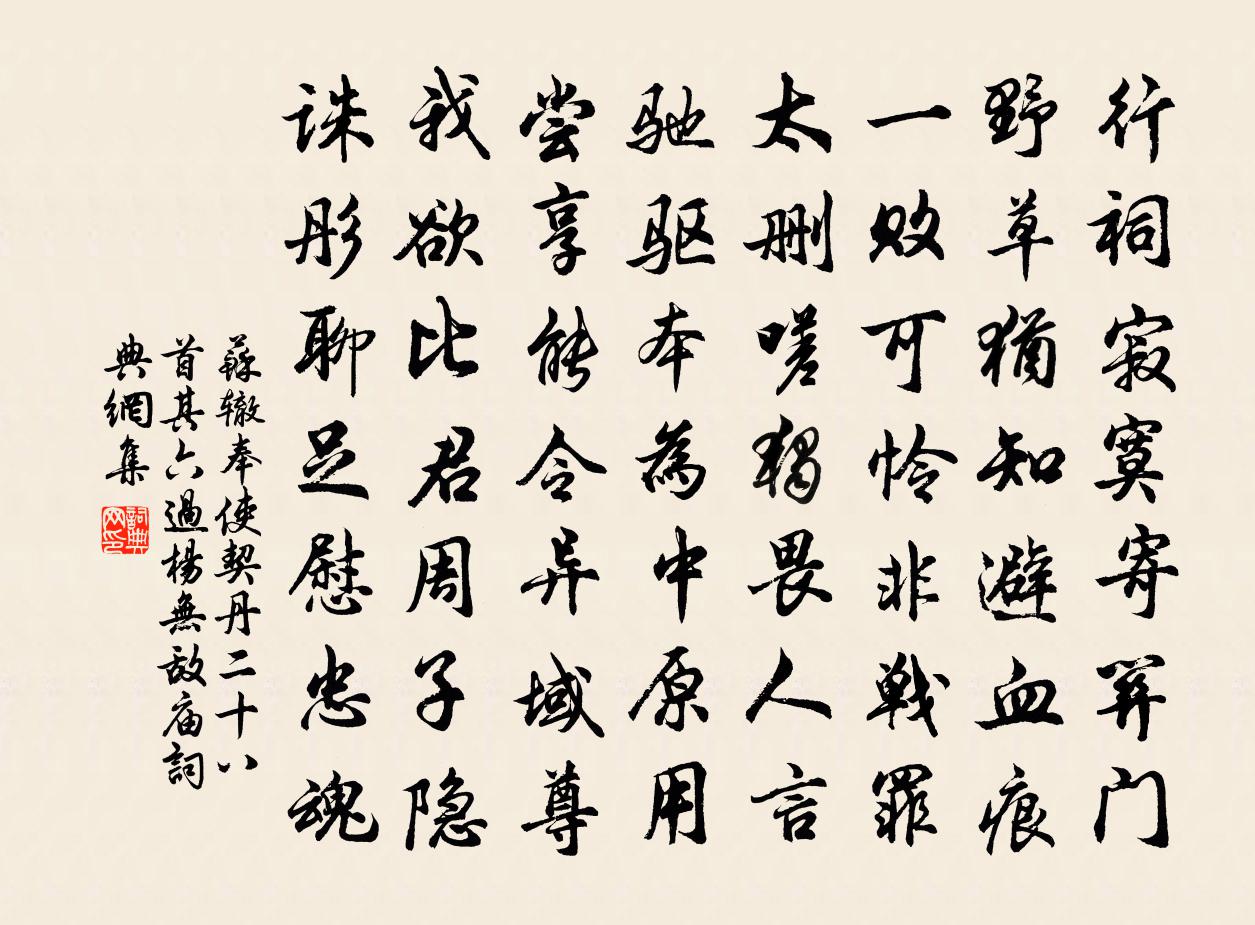 行祠寂寞寄关门
野草猶知避血痕
一败可怜非戦罪
太删嗟獨畏人言
驰驱本為中原用
尝享能令异域尊
我欲比君周子隐
诛彤聊足慰忠魂
蘇辙奉使契丹二十八
首其六過楊無敌庙詞
典網集
詞典网印